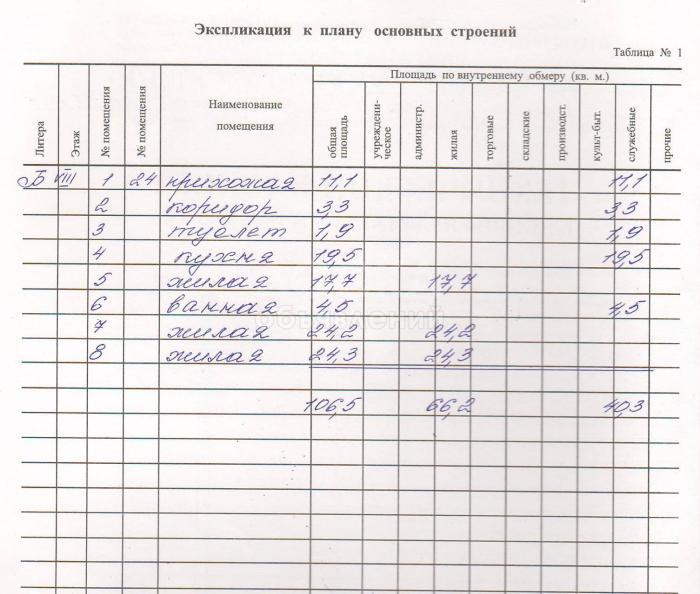 Экспликация к плану основных строений
Таблица № 1
Литера Этаж № помещения № помещения Наименование помещения Площадь по внутреннему обмеру (кв. м.)
общая площадь учреждени-ческое администр. жилая торговые складские производст. культ-быт. служебные прочие
Б VIII 1 24 прихожая 11,1 11,1
2 коридор 3,3 3,3
3 туалет 1,9 1,9
4 кухня 19,5 19,5
5 жилая 17,7 17,7
6 ванная 4,5 4,5
объявлений
7 жилая 24,2 24,2
8 жилая 24,3 24,3
106,5 66,2 40,3